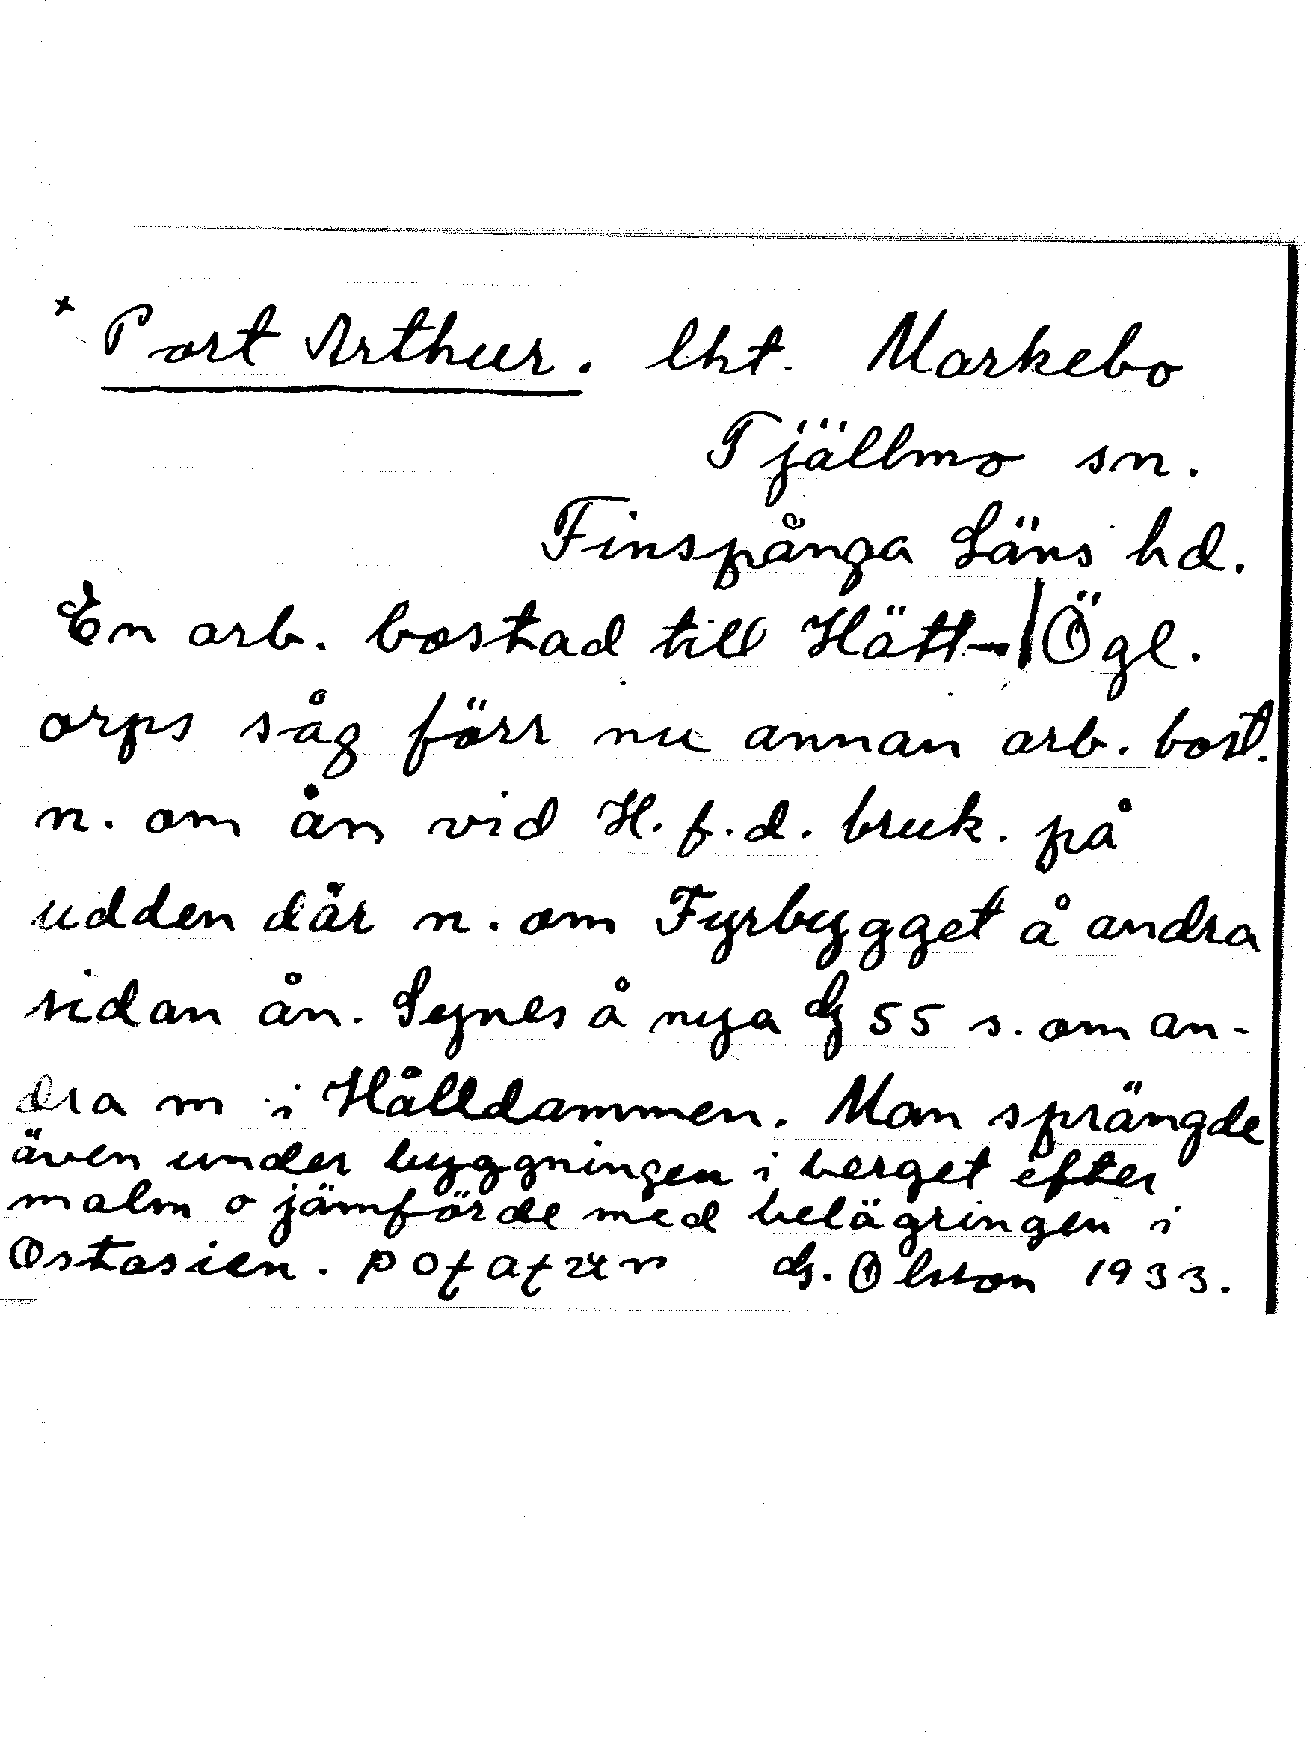 × Port Arthur. lht. Markebo
Tjällmo sn.
Finspånga Läns hd.
En arb. bostad till Hätt- | Ögl.
orps såg förr nu annan arb. bost.
n. om ån vid H. f. d. bruk. på
udden där n. om Fyrbygget å andra
sidan ån. Synes å nya G 55 s. om an-
dra m i Hålldammen. Man sprängde
även under byggningen i berget efter
malm o jämförde med belägringen i
Ostasien. G. Olsson 1933.